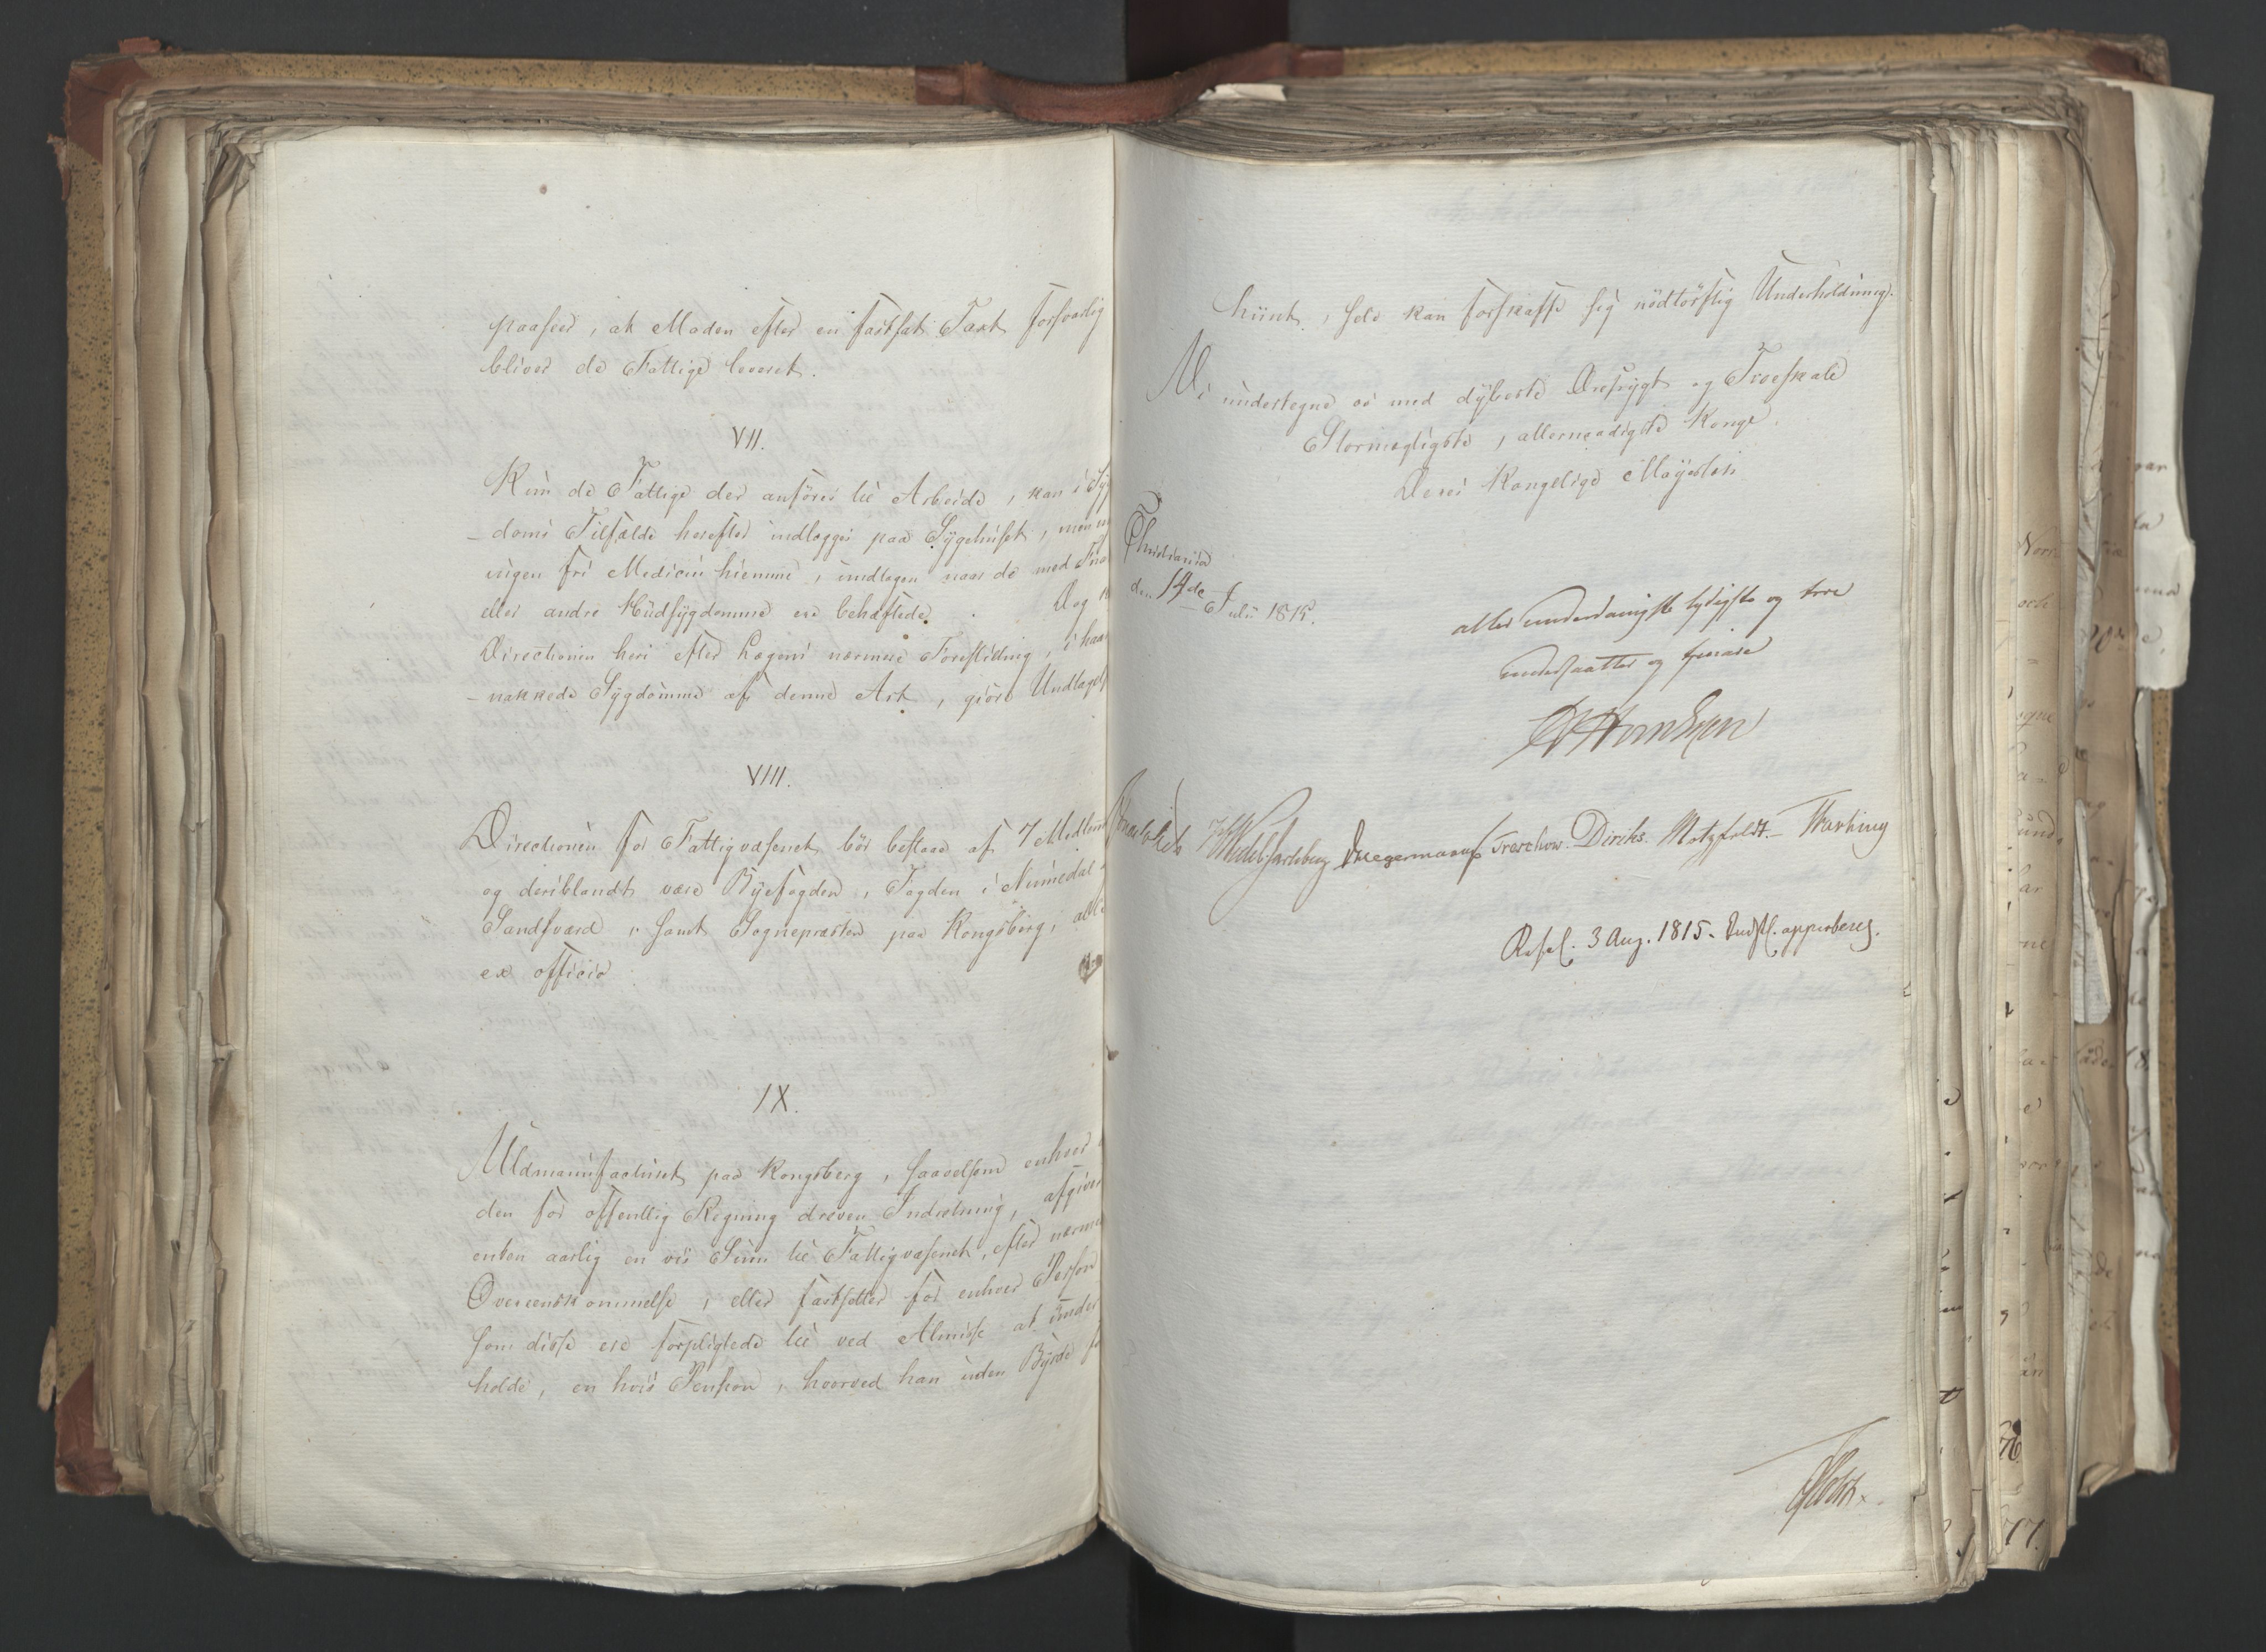 paaseer, at Maden efter en fastsat Taxt forsvarlig
bliver de Fattige leveret.
VII.
Kun de Fattige der anföres til Arbeide, kan i Syg
-doms Tilfælde herefter indlægges paa Sygehuset, men
ingen fri Medicin hiemme, undtagen naar de med
eller andre Hudsygdomme ere behæftede. Dog
Directionen heri efter Lægens nærmere Forestilling, i haard
-nakkede Sygdomme af denne Art, giöre Undtagels
VIII.
Directionen for Fattigvæsenet bör bestaae af 7 Medlem
og deriblandt være Byefogden, Fogden i Numedal
Sandsværd, samt Sognepræsten paa Kongsberg, alle
ex officio
IX.
Uldmanufacturet paa Kongsberg, saavelsom enhver
den for offentlig Regning dreven Indretning, afgiver
enten aarlig en vis Sum til Fattigvæsenet, efter nærme
Overeenskommelse, eller fastsetter for enhver Person
som disse ere forpligtede til ved Almisse at under
holde, en hvis Pension, hvorved han uden Byrde for
kunt, selv kan forskaffe sig nödtörftig Underholdning.
Vi undertegne os med dybeste Ærefrygt og Troeskab
Stormægtigste, allernaadigste Konge
Deres Kongelige Mayestets
Christiania
den 14de Julii 1815.
allerunderdanigste lydigste og troe
undersaatter og tjenere
Wedel Jarlsberg Hegermann Treschow. Diriks. Motzfeldt.
Resol. 3 Aug. 1815. Indst. approberes.
76.
77.